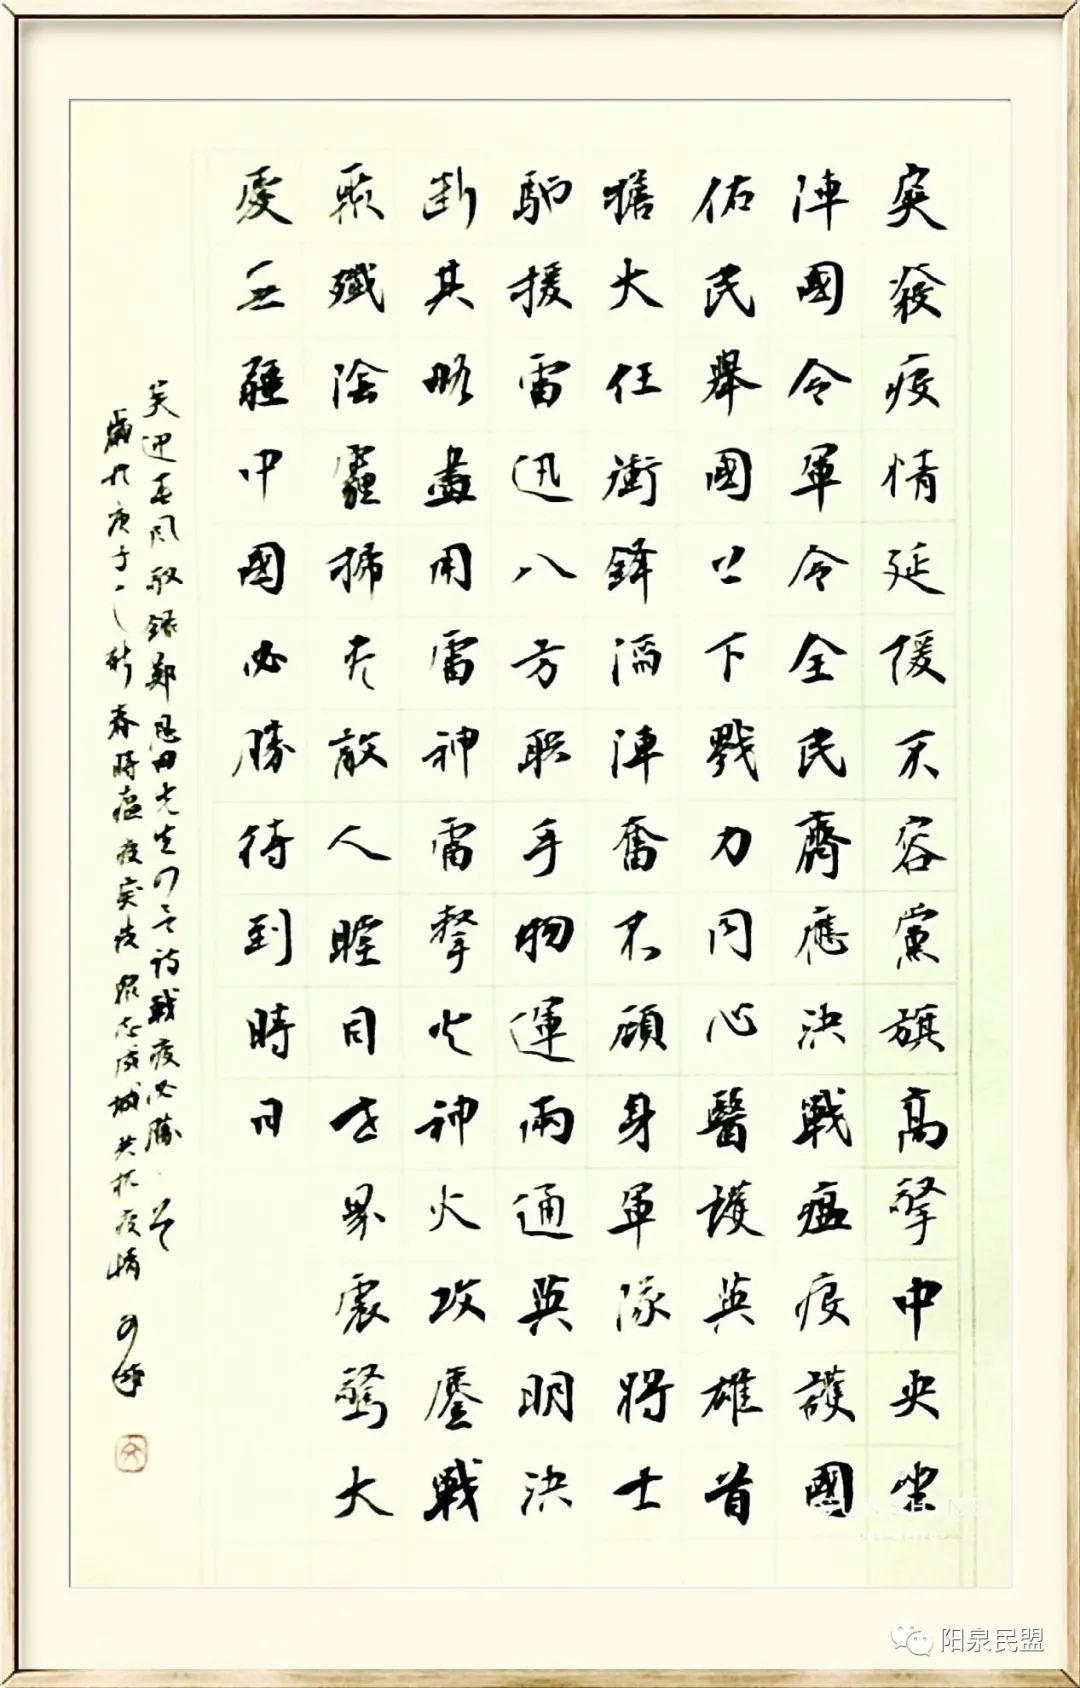 突發疫情延緩不容黨旗高擎中央坐
陣國令軍令全民齊應決戰瘟疫護國
佑民舉國上下戮力同心醫護英雄首
擔大任衝鋒陷陣奮不顧身軍隊將士
馳援雷迅八方联手物運兩通英明決
斷其略盡用雷神雷擊火神火攻鏖戰
聚殲陰霾掃光敵人瞠目世界震驚大
愛無疆中國必勝待到時日
笑迎春風敬錄鄭恩田先生四言詩戰疫必勝
歲於庚子新春時瘟疫突發眾志成城共抗疫情
阳泉民盟